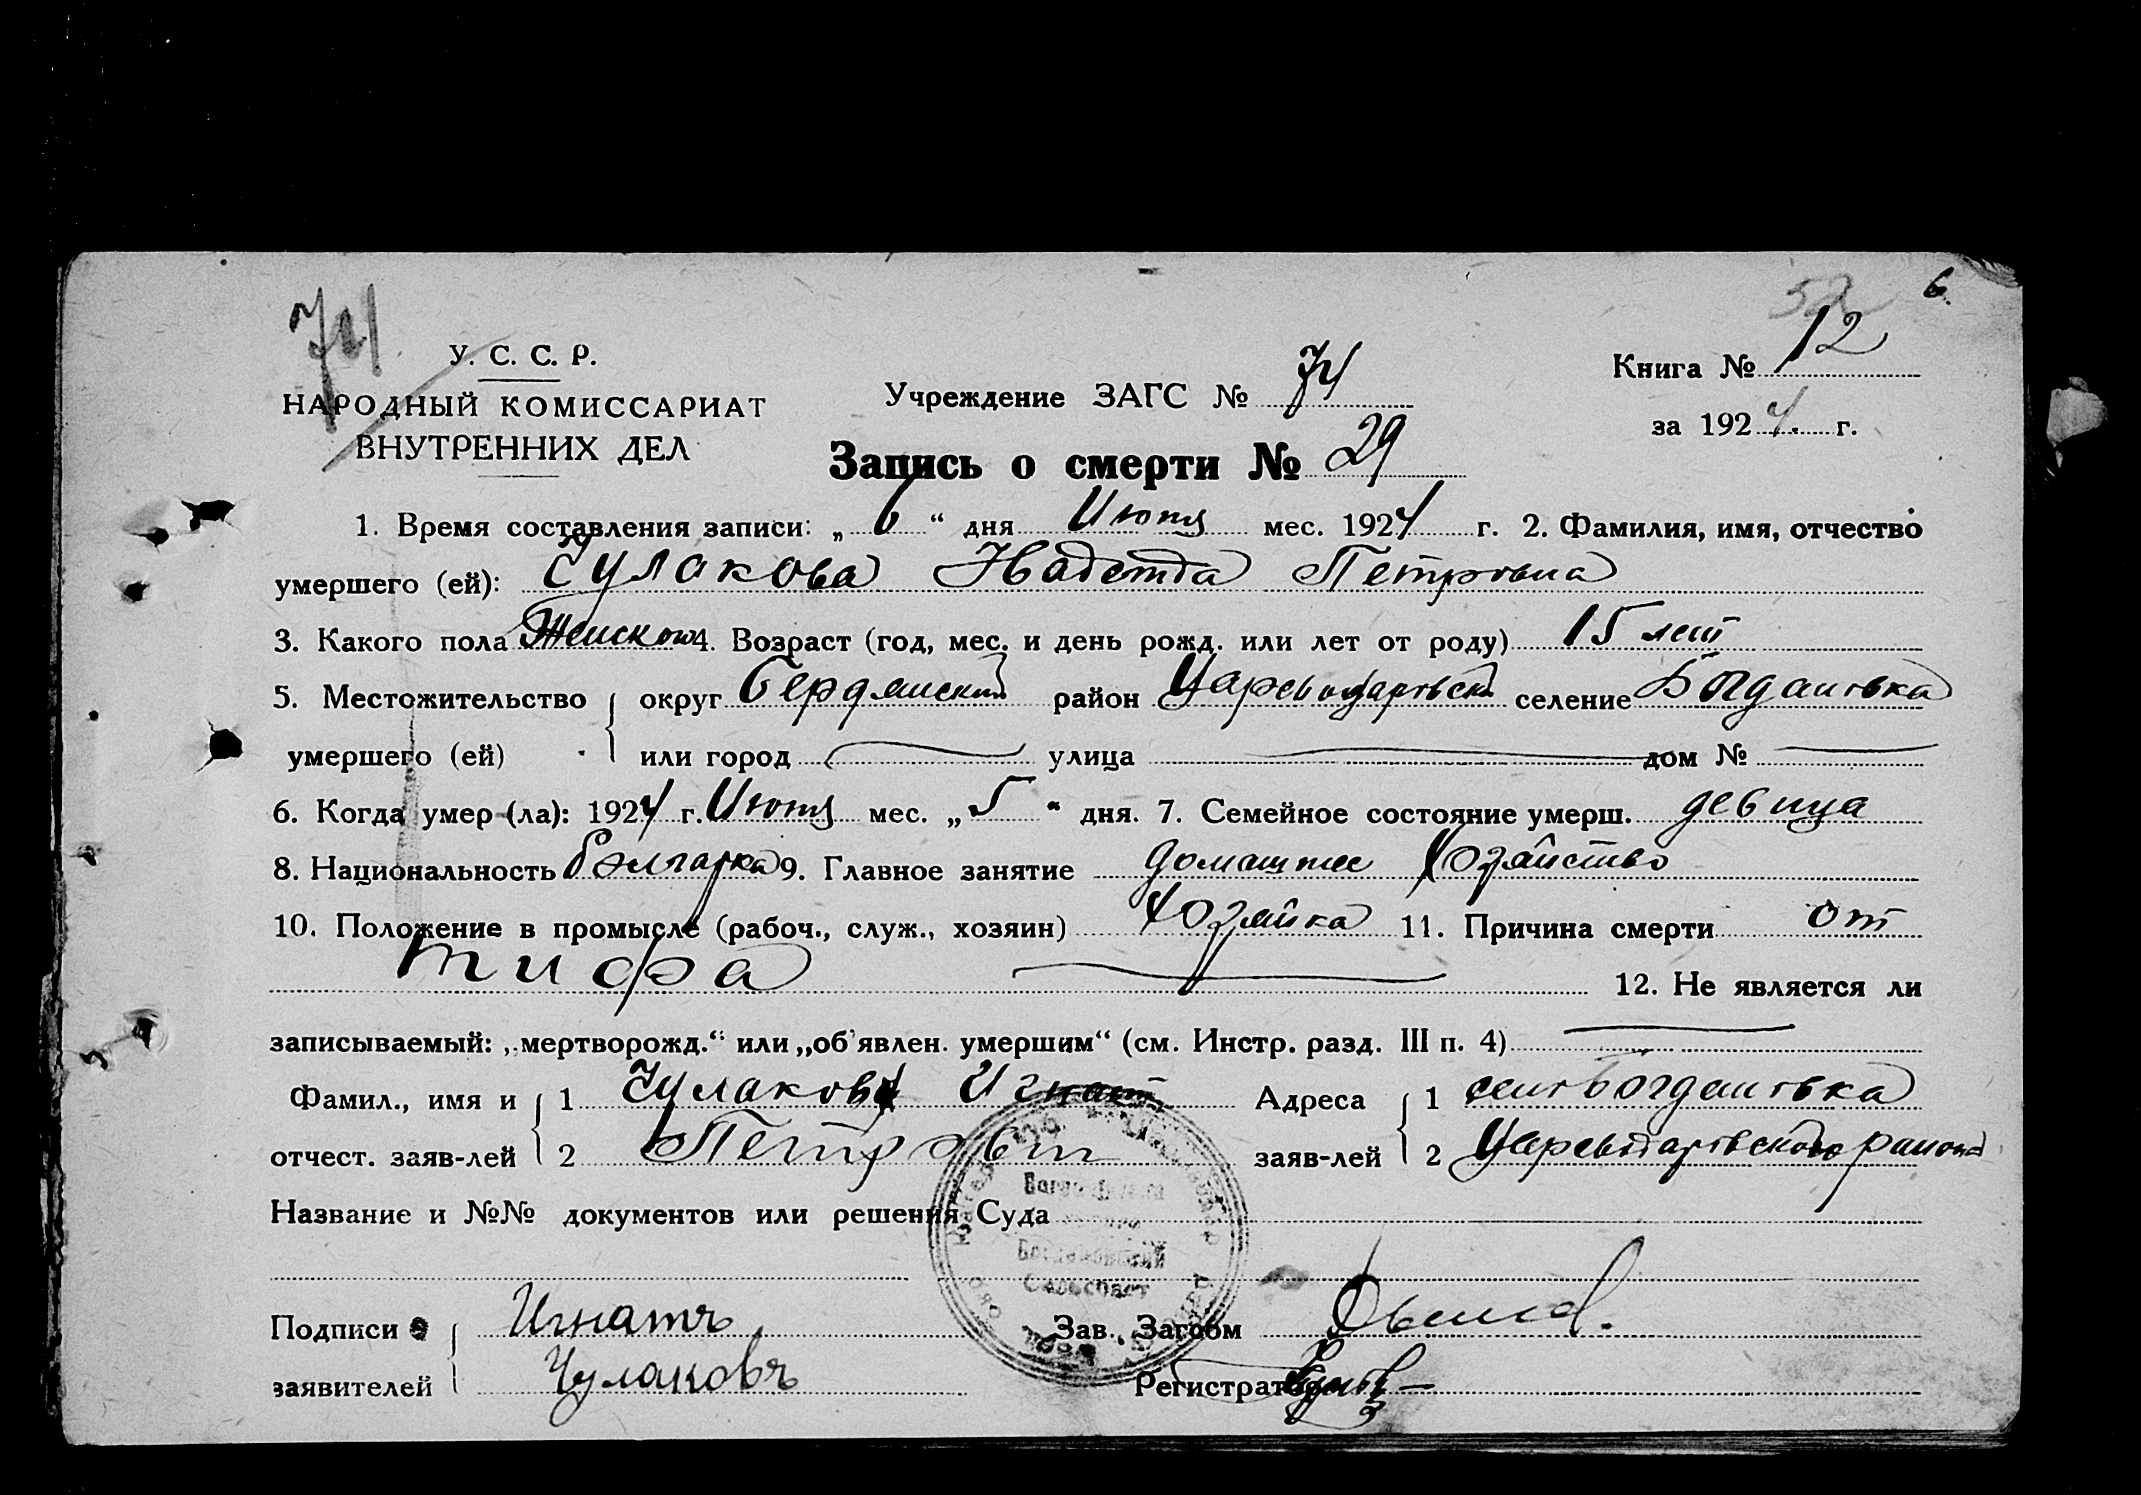 74
52
6.
У. С. С. Р.
НАРОДНЫЙ КОМИССАРИАТ
ВНУТРЕННИХ ДЕЛ
Учреждение ЗАГС № 74
Книга № 12
за 1924. г.
Запись о смерти № 29
1. Время составления записи: „ 6 “ дня Июня мес. 1924 г. 2. Фамилия, имя, отчество
умершего (ей): Чулакова Надежда Петровна
3. Какого пола Женского 4. Возраст (год, мес. и день рожд. или лет от роду) 15 лет
5. Местожительство округ Бердянский район Цареводаровск селение Богдановка
умершего (ей) или город улица дом №
6. Когда умер (ла): 1924 г. Июня мес. „ 5 “ дня. 7. Семейное состояние умерш. девица
8. Национальность болгарка 9. Главное занятие домашнее хозяйство
10. Положение в промысле (рабоч., служ., хозяин) хозяйка 11. Причина смерти от
тифа 12. Не является ли
записываемый: „мертворожд.“ или „об'явлен. умершим“ (см. Инстр. разд. III п. 4)
Фамил., имя и 1 Чулаков Игнат Адреса 1 село Богдановка
отчест. заяв-лей 2 Петрович заяв-лей 2 Цареводаровского района
Название и №№ документов или решения Суда
Богдановский
Сельсовет
Подписи Игнатъ Зав. Загсом
заявителей Чулаковъ Регистратор